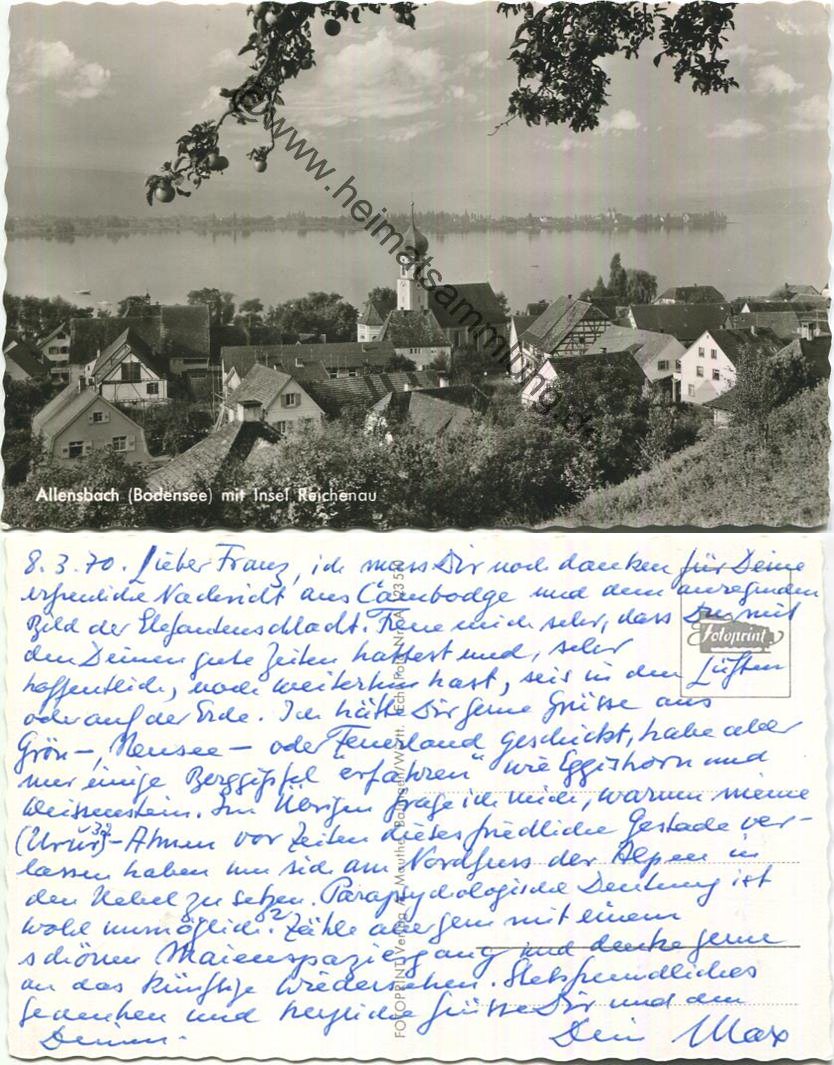 © www.heimatsammlung.de
Allensbach (Bodensee) mit Insel Reichenau
8.3.70. Lieber Franz, ich muss Dir noch danken für Deine
erfreuliche Nachricht aus Cambodge und dem anregenden
Bild der Elefantenschlacht. Freue mich sehr, dass Du mit
den Deinen gute Zeiten hattest und, sehr
hoffentlich, noch weiterhin hast, seis in den Lüften
oder auf der Erde. Ich hätte Dir gerne Grüsse aus
Grön-, Neusee- oder Feuerland geschickt, habe aber
nur einige Berggipfel "erfahren" wie Eggishorn und
Weissenstein. Im Übrigen frage ich mich, warum meine
(Urur)³²-Ahnen vor Zeiten dieses friedliche Gestade ver-
lassen haben um sich am Nordfuss der Alpen in
den Nebel zu setzen. Parapsychologische Deutung ist
wohl unmöglich? Zähle aber gern mit einem
schönen Maienspaziergang und denke gerne
an das künftige Wiedersehen. Stets freundliches
Gedenken und herzliche Grüsse Dir und den
Deinen.
Dein Max
Fotoprint
FOTOPRINT-Verlag A. Mauthe, Balingen/Württ. Echt Foto Nr. A